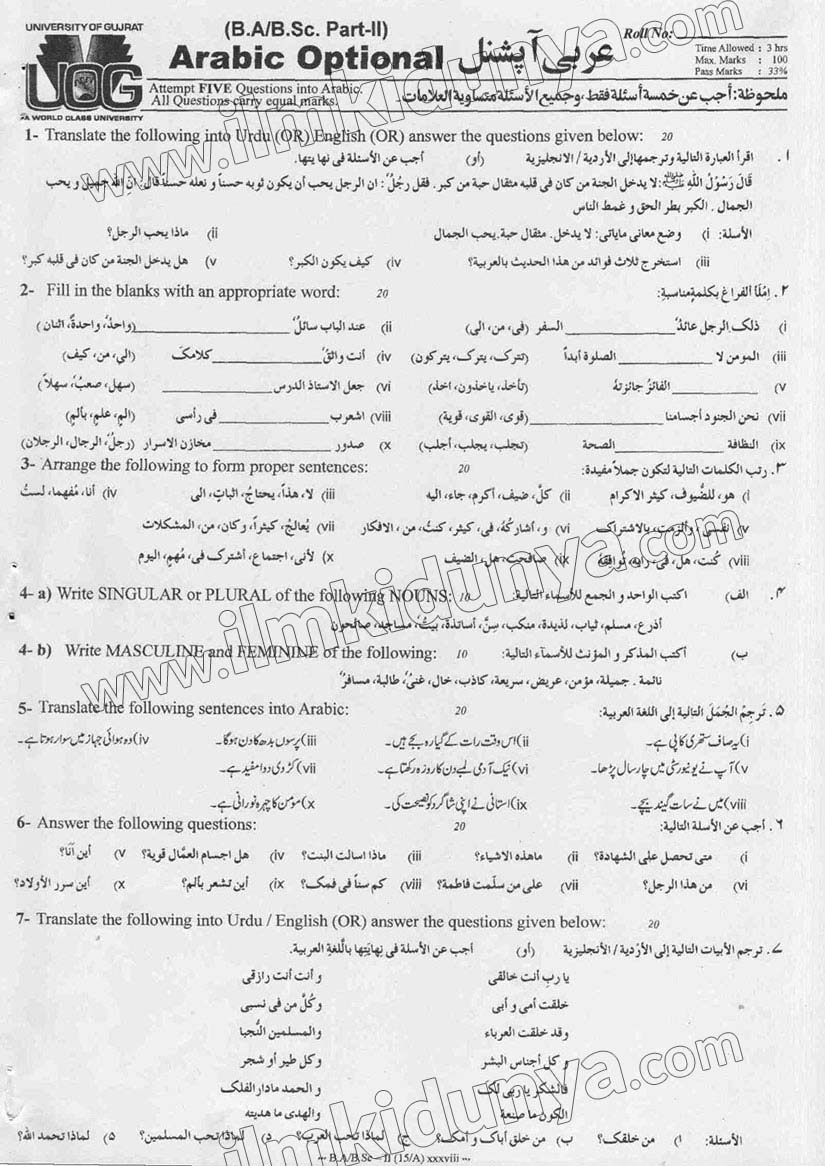 UNIVERSITY OF GUJRAT
UOG
A WORLD CLASS UNIVERSITY
(B.A/B.Sc. Part-II)
Arabic Optional عربی آپشنل
Roll No:
Time Allowed : 3 hrs
Max. Marks : 100
Pass Marks : 33%
Attempt FIVE Questions into Arabic.
All Questions carry equal marks.
ملحوظة: أجب عن خمسة أسئلة فقط، وجميع الأسئلة متساوية العلامات۔
1- Translate the following into Urdu (OR) English (OR) answer the questions given below: 20
۱. اقرأ العبارة التالية وترجمها إلى الأردية / الانجليزية (أو) أجب عن الأسئلة في نهايتها.
قَالَ رَسُوْلُ اللّٰهِ ﷺ: لا يدخل الجنة من كان فى قلبه مثقال حبة من كبر. فقل رجُلٌ: ان الرجل يحب أن يكون ثوبه حسناً و نعله حسناً قال: ان الله جميل و يحب
الجمال. الكبر بطر الحق و غمط الناس
الأسئلة: i) وضع معانى ماياتى: لا يدخل. مثقال حبة. يحب الجمال ii) ماذا يحب الرجل؟
iii) استخرج ثلاث فوائد من هذا الحديث بالعربية؟ iv) كيف يكون الكبر؟ v) هل يدخل الجنة من كان فى قلبه كبر؟
2- Fill in the blanks with an appropriate word: 20 ۲. اِملَأ الفراغ بكلمةٍ مناسبةٍ:
i) ذلك الرجل عائدٌ ______ السفر (فى، من، الى) ii) عند الباب سائلٌ ______ (واحدٌ، واحدةٌ، اثنان)
iii) المومن لا ______ الصلوة أبداً (تترك، يترك، يتركون) iv) أنت واثقٌ ______ كلامك (الي، من، كيف)
v) ______ الفائزُ جائزتهُ (تأخذ، ياخذون، اخذ) vi) جعل الاستاذ الدرس ______ (سهل، صعبٌ، سهلاً)
vii) نحن الجنود أجسامنا ______ (قوى، القوى، قوية) viii) اشعرب ______ فى رأسى (الم، علم، بألم)
ix) النظافة ______ الصحة (تجلب، يجلب، أجلب) x) صدور ______ مخازن الاسرار (رجلٌ، الرجال، الرجلان)
3- Arrange the following to form proper sentences: 20 ۳. رتب الكلمات التالية لتكون جملاً مفيدة:
i) هو، للضُيوف، كيثر الاكرام ii) كلَّ، ضيف، أكرم، جاء، اليه iii) لا، هذاً، يحتاجُ، اثباتٍ، الى iv) أنا، مُفهما، لستُ
v) نفسى، والزمت، بالاشتراك vi) و، أشاركُهُ، فى، كيثر، كنتُ، من، الافكار vii) يُعالجُ، كيثراً، وكان، من، المشكلات
viii) كُنت، هل، فى، رايه، تُوافقهُ ix) صافحت، هل، الضيف x) لأنى، اجتماع، أشترك فى، مُهم، اليوم
4- a) Write SINGULAR or PLURAL of the following NOUNS: 10 ۴. الف) اكتب الواحد و الجمع للأسماء التالية:
أذرع، مسلم، ثياب، لذيدة، منكب، سِنّ، أساتذة، بيتٌ، مساجد، صالحون
4- b) Write MASCULINE and FEMININE of the following: 10 ب) أكتب المذكر و المؤنث للأسمآء التالية:
نائمة. جميلة، مؤمن، عريض، سريعة، كاذب، خال، غنىٌ، طالبة، مسافرٌ
5- Translate the following sentences into Arabic: 20 ۵. تَرجِمُ الجُمَلَ التالية إلى اللغة العربية:
i) یہ صاف ستھری کاپی ہے۔ ii) اس وقت رات کے گیارہ بجے ہیں۔ iii) پرسوں بدھ کا دن ہوگا۔ iv) وہ ہوائی جہاز میں سوار ہوتا ہے۔
v) آپ نے یونیورسٹی میں چار سال پڑھا۔ vi) نیک آدمی لمبے دن کا روزہ رکھتا ہے۔ vii) کڑوی دوا مفید ہے۔
viii) میں نے سات گیند بیچے۔ ix) استانی نے اپنی شاگرد کو نصیحت کی۔ x) مؤمن کا چہرہ نورانی ہے۔
6- Answer the following questions: 20 ۶. أجب عن الأسلة التالية:
i) متى تحصل على الشهادة؟ ii) ماهذه الاشياء؟ iii) ماذا اسالت البنت؟ iv) هل اجسام العمَّال قوية؟ v) أين أنا؟
vi) من هذا الرجل؟ vii) على من سلَّمت فاطمة؟ viii) كم سناً فى فمك؟ ix) أين تشعر بألم؟ x) أين سرر الأولاد؟
7- Translate the following into Urdu / English (OR) answer the questions given below: 20
۷. ترجم الأبيات التالية إلى الأردية / الأنجليزية (أو) أجب عن الأسلة فى نهايتها باللَّغة العربية.
يا ربِ أنت خالقى و أنت أنت رازقى
خلقت أمى و أبى وكُل من فى نسبى
وقد خلقت العرباء والمسلمين النُّجبا
و كل أجناس البشر و كل طير أو شجر
فالشكر يا ربى لك و الحمد مادار الفلك
الكون ما صنعة والهدى ما هديته
الأسئلة: ا) من خلقك؟ ب) من خلق أباك و أمك؟ ج) لماذا تحب العرب؟ د) لماذا تحب المسلمين؟ ۵) لماذا تحمد الله؟
--- B.A/B.Sc – II (15/A) xxxviii ---
www.ilmkidunya.com
www.ilmkidunya.com
www.ilmkidunya.com